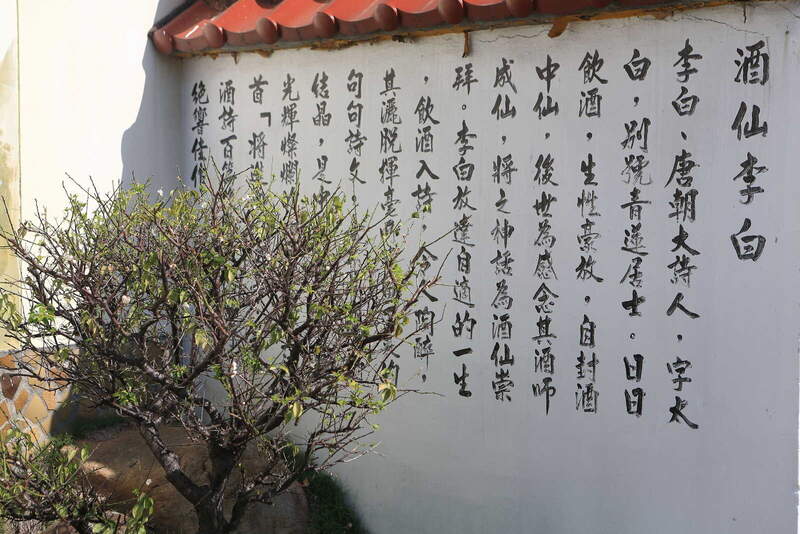 酒仙李白
李白、唐朝大詩人，字太
白，別號青蓮居士。日日
飲酒，生性豪放。自封酒
中仙，後世為感念其酒師
成仙，將之神話為酒仙崇
拜。李白放達自適的一生
，飲酒入詩，令人陶醉，
其灑脫揮毫
句句詩文
結晶，是
光輝燦爛
首「將進
酒詩百篇
絕響佳作